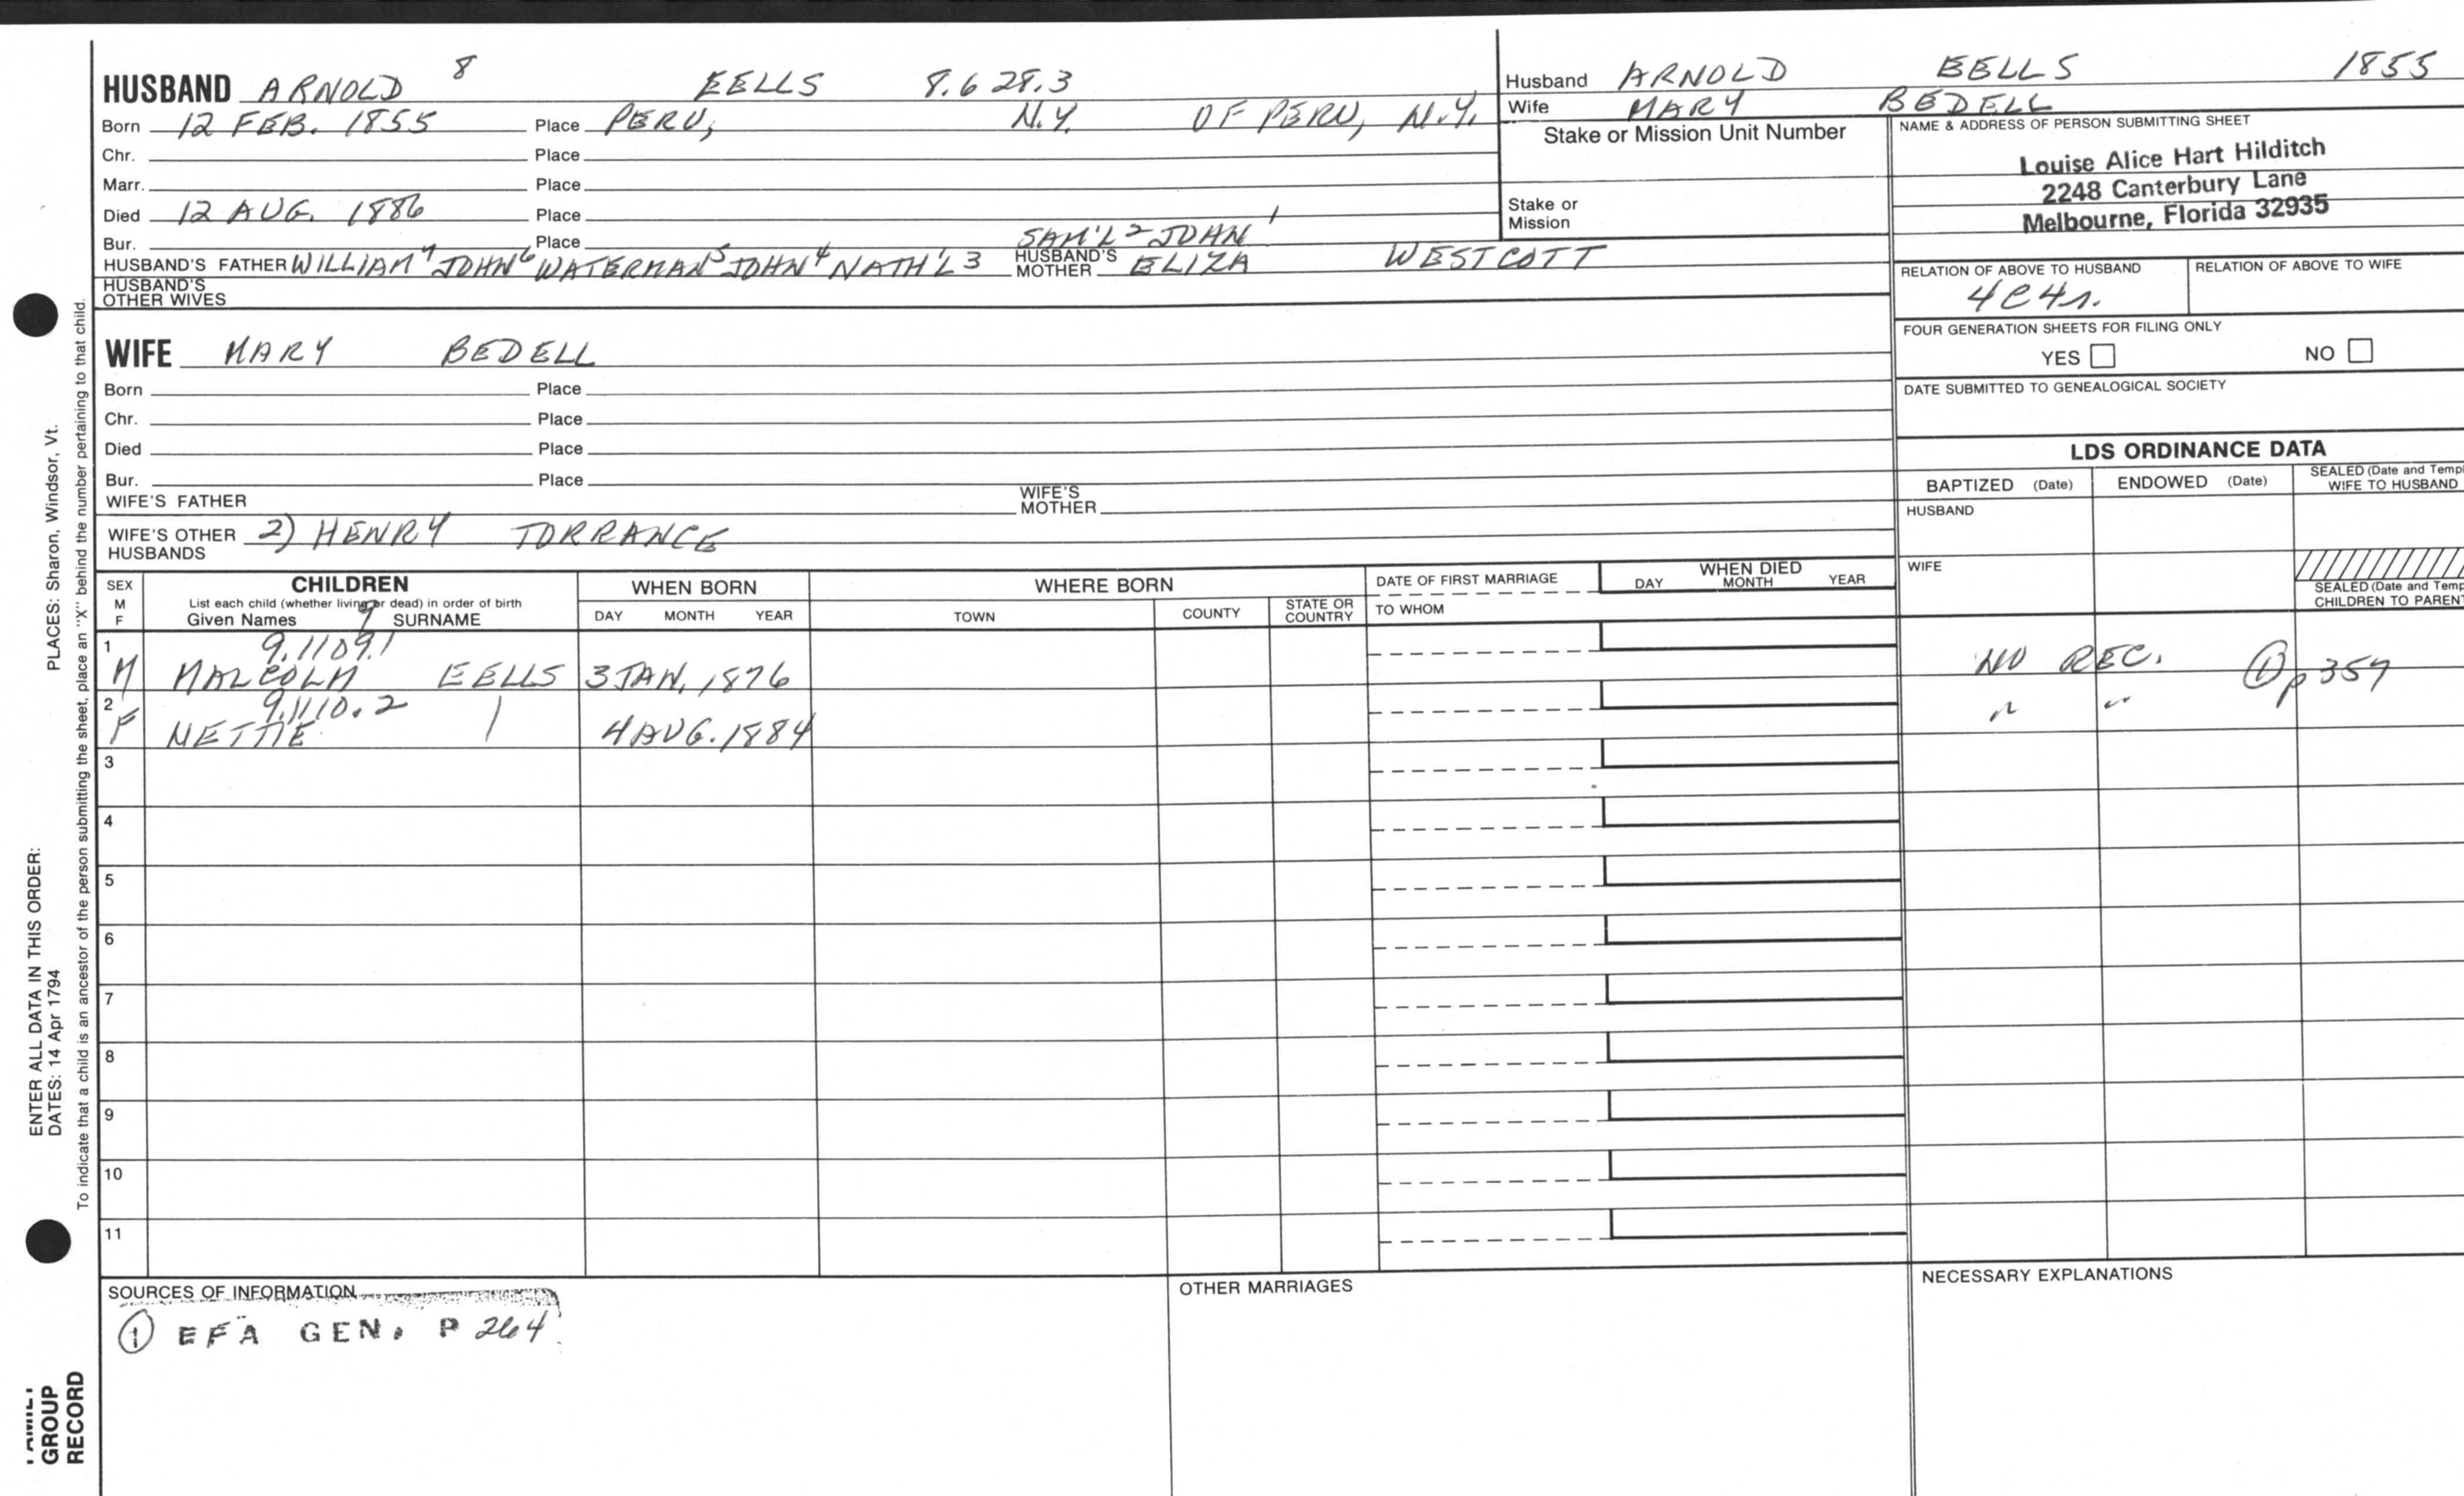 HUSBAND ARNOLD 8 EELLS 8.628.3
Born 12 FEB. 1855 Place PERU, N.Y. OF PERU, N.Y.
Chr. Place
Marr. Place
Died 12 AUG. 1886 Place
Bur. Place SAM'L 2 JOHN 1
HUSBAND'S FATHER WILLIAM 7 JOHN 6 WATERMAN 5 JOHN 4 NATH'L 3 HUSBAND'S MOTHER ELIZA WESTCOTT
HUSBAND'S OTHER WIVES
WIFE MARY BEDELL
Born Place
Chr. Place
Died Place
Bur. Place
WIFE'S FATHER WIFE'S MOTHER
WIFE'S OTHER HUSBANDS 2) HENRY TORRANCE
Husband ARNOLD EELLS 1855
Wife MARY BEDELL
Stake or Mission Unit Number
Stake or Mission
NAME & ADDRESS OF PERSON SUBMITTING SHEET
Louise Alice Hart Hilditch
2248 Canterbury Lane
Melbourne, Florida 32935
RELATION OF ABOVE TO HUSBAND RELATION OF ABOVE TO WIFE
4C4r.
FOUR GENERATION SHEETS FOR FILING ONLY
YES NO
DATE SUBMITTED TO GENEALOGICAL SOCIETY
LDS ORDINANCE DATA
BAPTIZED (Date) ENDOWED (Date) SEALED (Date and Templ
WIFE TO HUSBAND
HUSBAND
WIFE
SEALED (Date and Temp
CHILDREN TO PARENT
SEX
M
F
CHILDREN
List each child (whether living or dead) in order of birth
Given Names 9 SURNAME
WHEN BORN
DAY MONTH YEAR
WHERE BORN
TOWN COUNTY STATE OR COUNTRY
DATE OF FIRST MARRIAGE
TO WHOM
WHEN DIED
DAY MONTH YEAR
1 9.1109.1
M MALCOLM EELLS 3 JAN. 1876 NO REC. ① p 357
2 9.1110.2
F NETTIE | 4 AUG. 1884 " "
3
4
5
6
7
8
9
10
11
SOURCES OF INFORMATION
① EFA GEN. P 264
OTHER MARRIAGES
NECESSARY EXPLANATIONS
ENTER ALL DATA IN THIS ORDER:
DATES: 14 Apr 1794 PLACES: Sharon, Windsor, Vt.
To indicate that a child is an ancestor of the person submitting the sheet, place an "X" behind the number pertaining to that child.
FAMILY
GROUP
RECORD